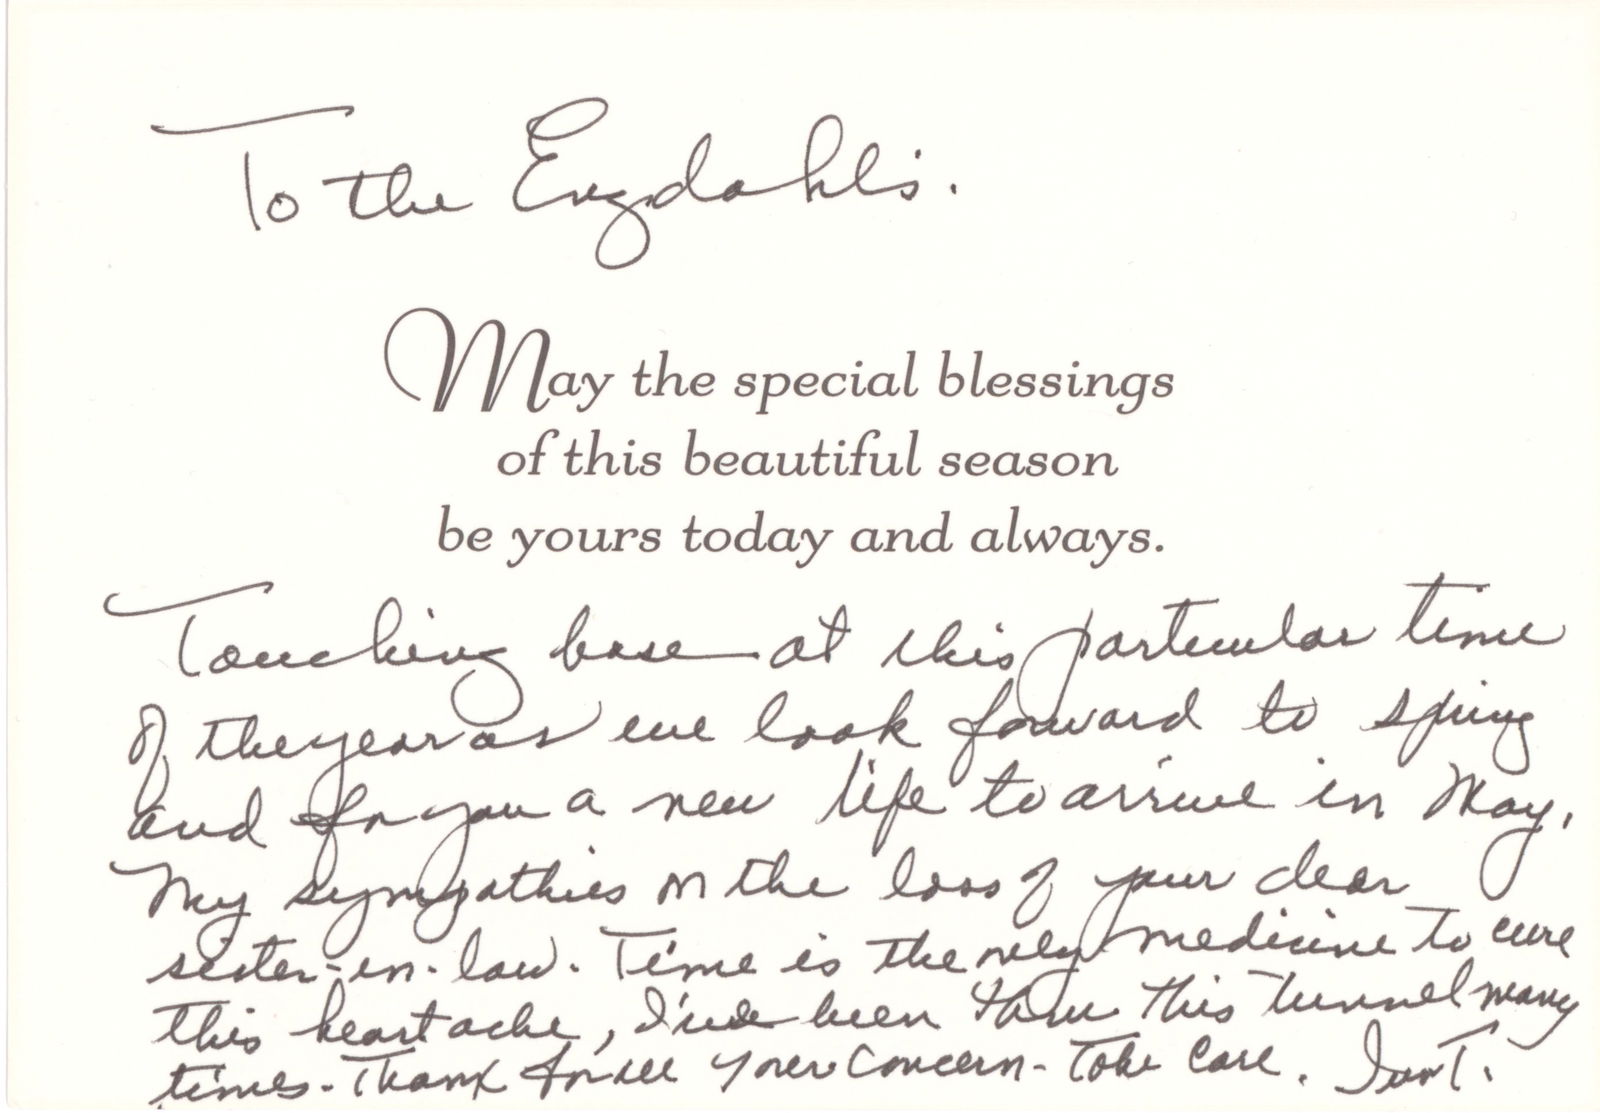 To the Engdahl's.
May the special blessings
of this beautiful season
be yours today and always.
Touching base at this particular time
of the year as we look forward to spring
and for you a new life to arrive in May.
My sympathies on the loss of your dear
sister-in-law. Time is the only medicine to cure
this heartache, I've been thru this tunnel many
times. Thank for all your concern - Take Care.